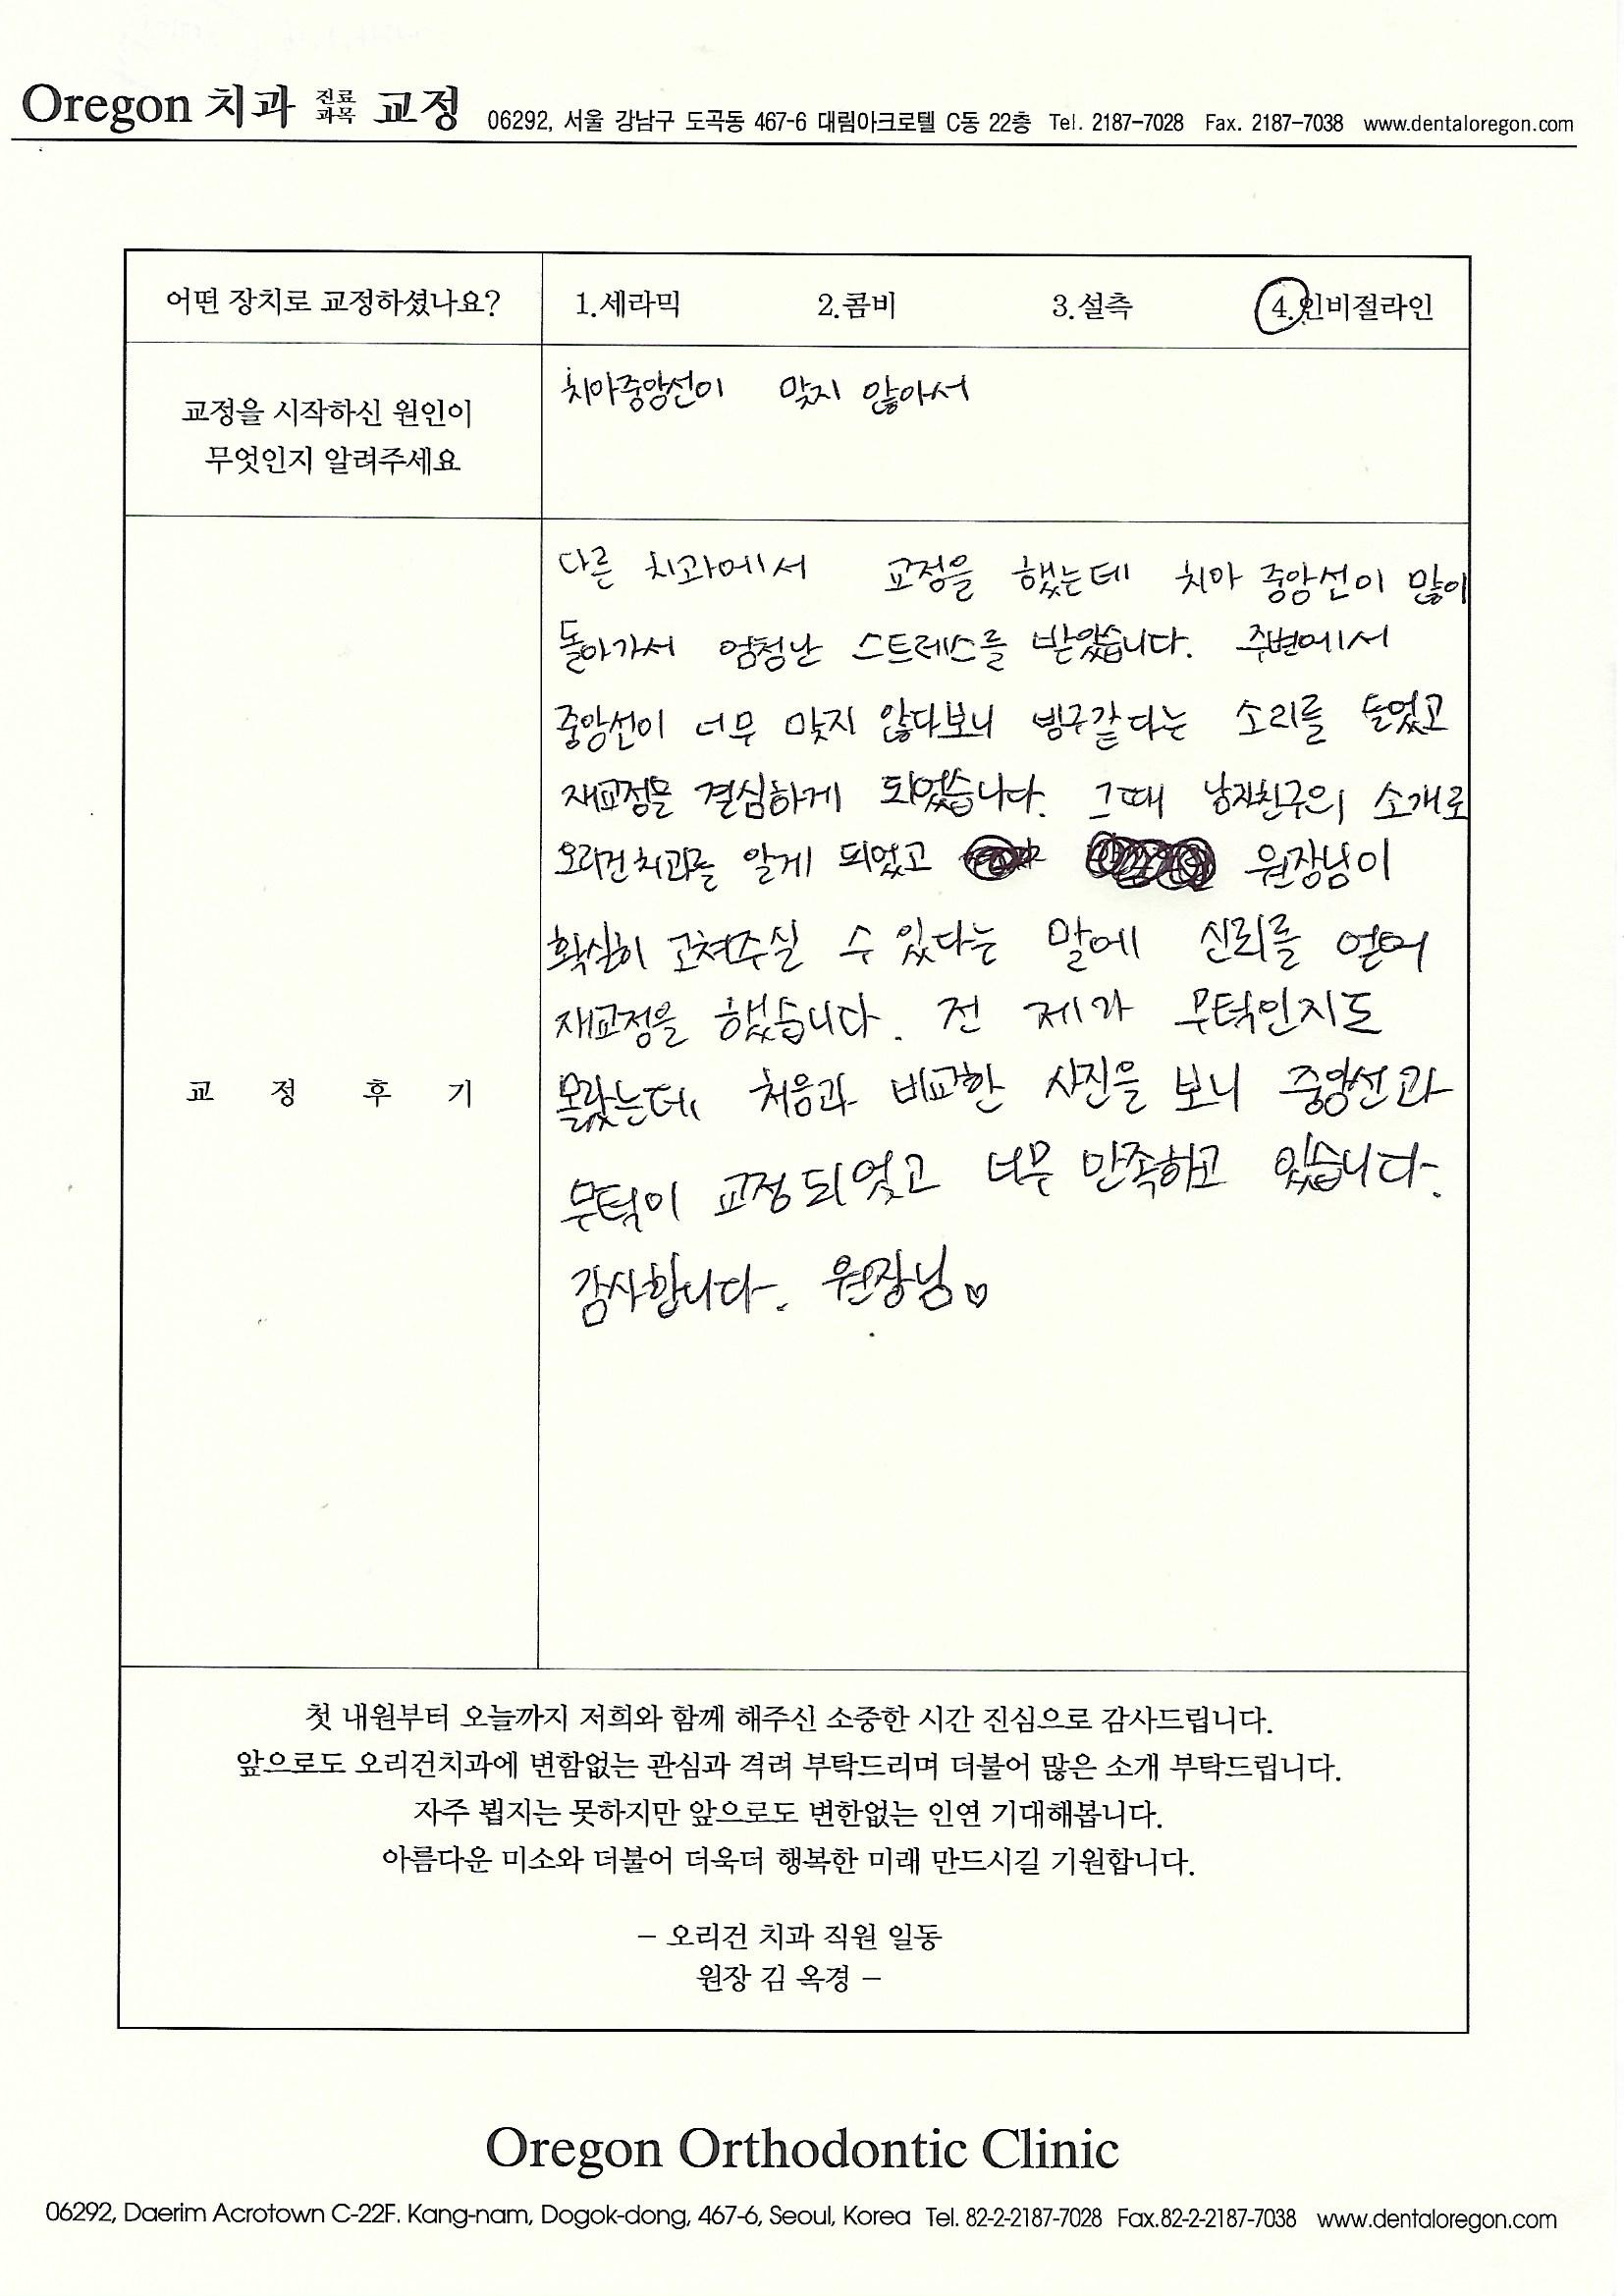 Oregon 치과 진료과목 교정 06292, 서울 강남구 도곡동 467-6 대림아크로텔 C동 22층 Tel. 2187-7028 Fax. 2187-7038 www.dentaloregon.com
어떤 장치로 교정하셨나요? 1.세라믹 2.콤비 3.설측 4.인비절라인
교정을 시작하신 원인이
무엇인지 알려주세요
치아중앙선이 맞지 않아서
교 정 후 기
다른 치과에서 교정을 했는데 치아 중앙선이 많이
돌아가서 엄청난 스트레스를 받았습니다. 주변에서
중앙선이 너무 맞지 않다보니 빙구같다는 소리를 들었고
재교정을 결심하게 되었습니다. 그때 남자친구의 소개로
오리건치과를 알게 되었고 원장님이
확실히 고쳐주실 수 있다는 말에 신뢰를 얻어
재교정을 했습니다. 전 제가 무턱인지도
몰랐는데, 처음과 비교한 사진을 보니 중앙선과
무턱이 교정되었고 너무 만족하고 있습니다.
감사합니다. 원장님♡
첫 내원부터 오늘까지 저희와 함께 해주신 소중한 시간 진심으로 감사드립니다.
앞으로도 오리건치과에 변함없는 관심과 격려 부탁드리며 더불어 많은 소개 부탁드립니다.
자주 뵙지는 못하지만 앞으로도 변한없는 인연 기대해봅니다.
아름다운 미소와 더불어 더욱더 행복한 미래 만드시길 기원합니다.
– 오리건 치과 직원 일동
원장 김 옥경 –
Oregon Orthodontic Clinic
06292, Daerim Acrotown C-22F. Kang-nam, Dogok-dong, 467-6, Seoul, Korea Tel. 82-2-2187-7028 Fax.82-2-2187-7038 www.dentaloregon.com